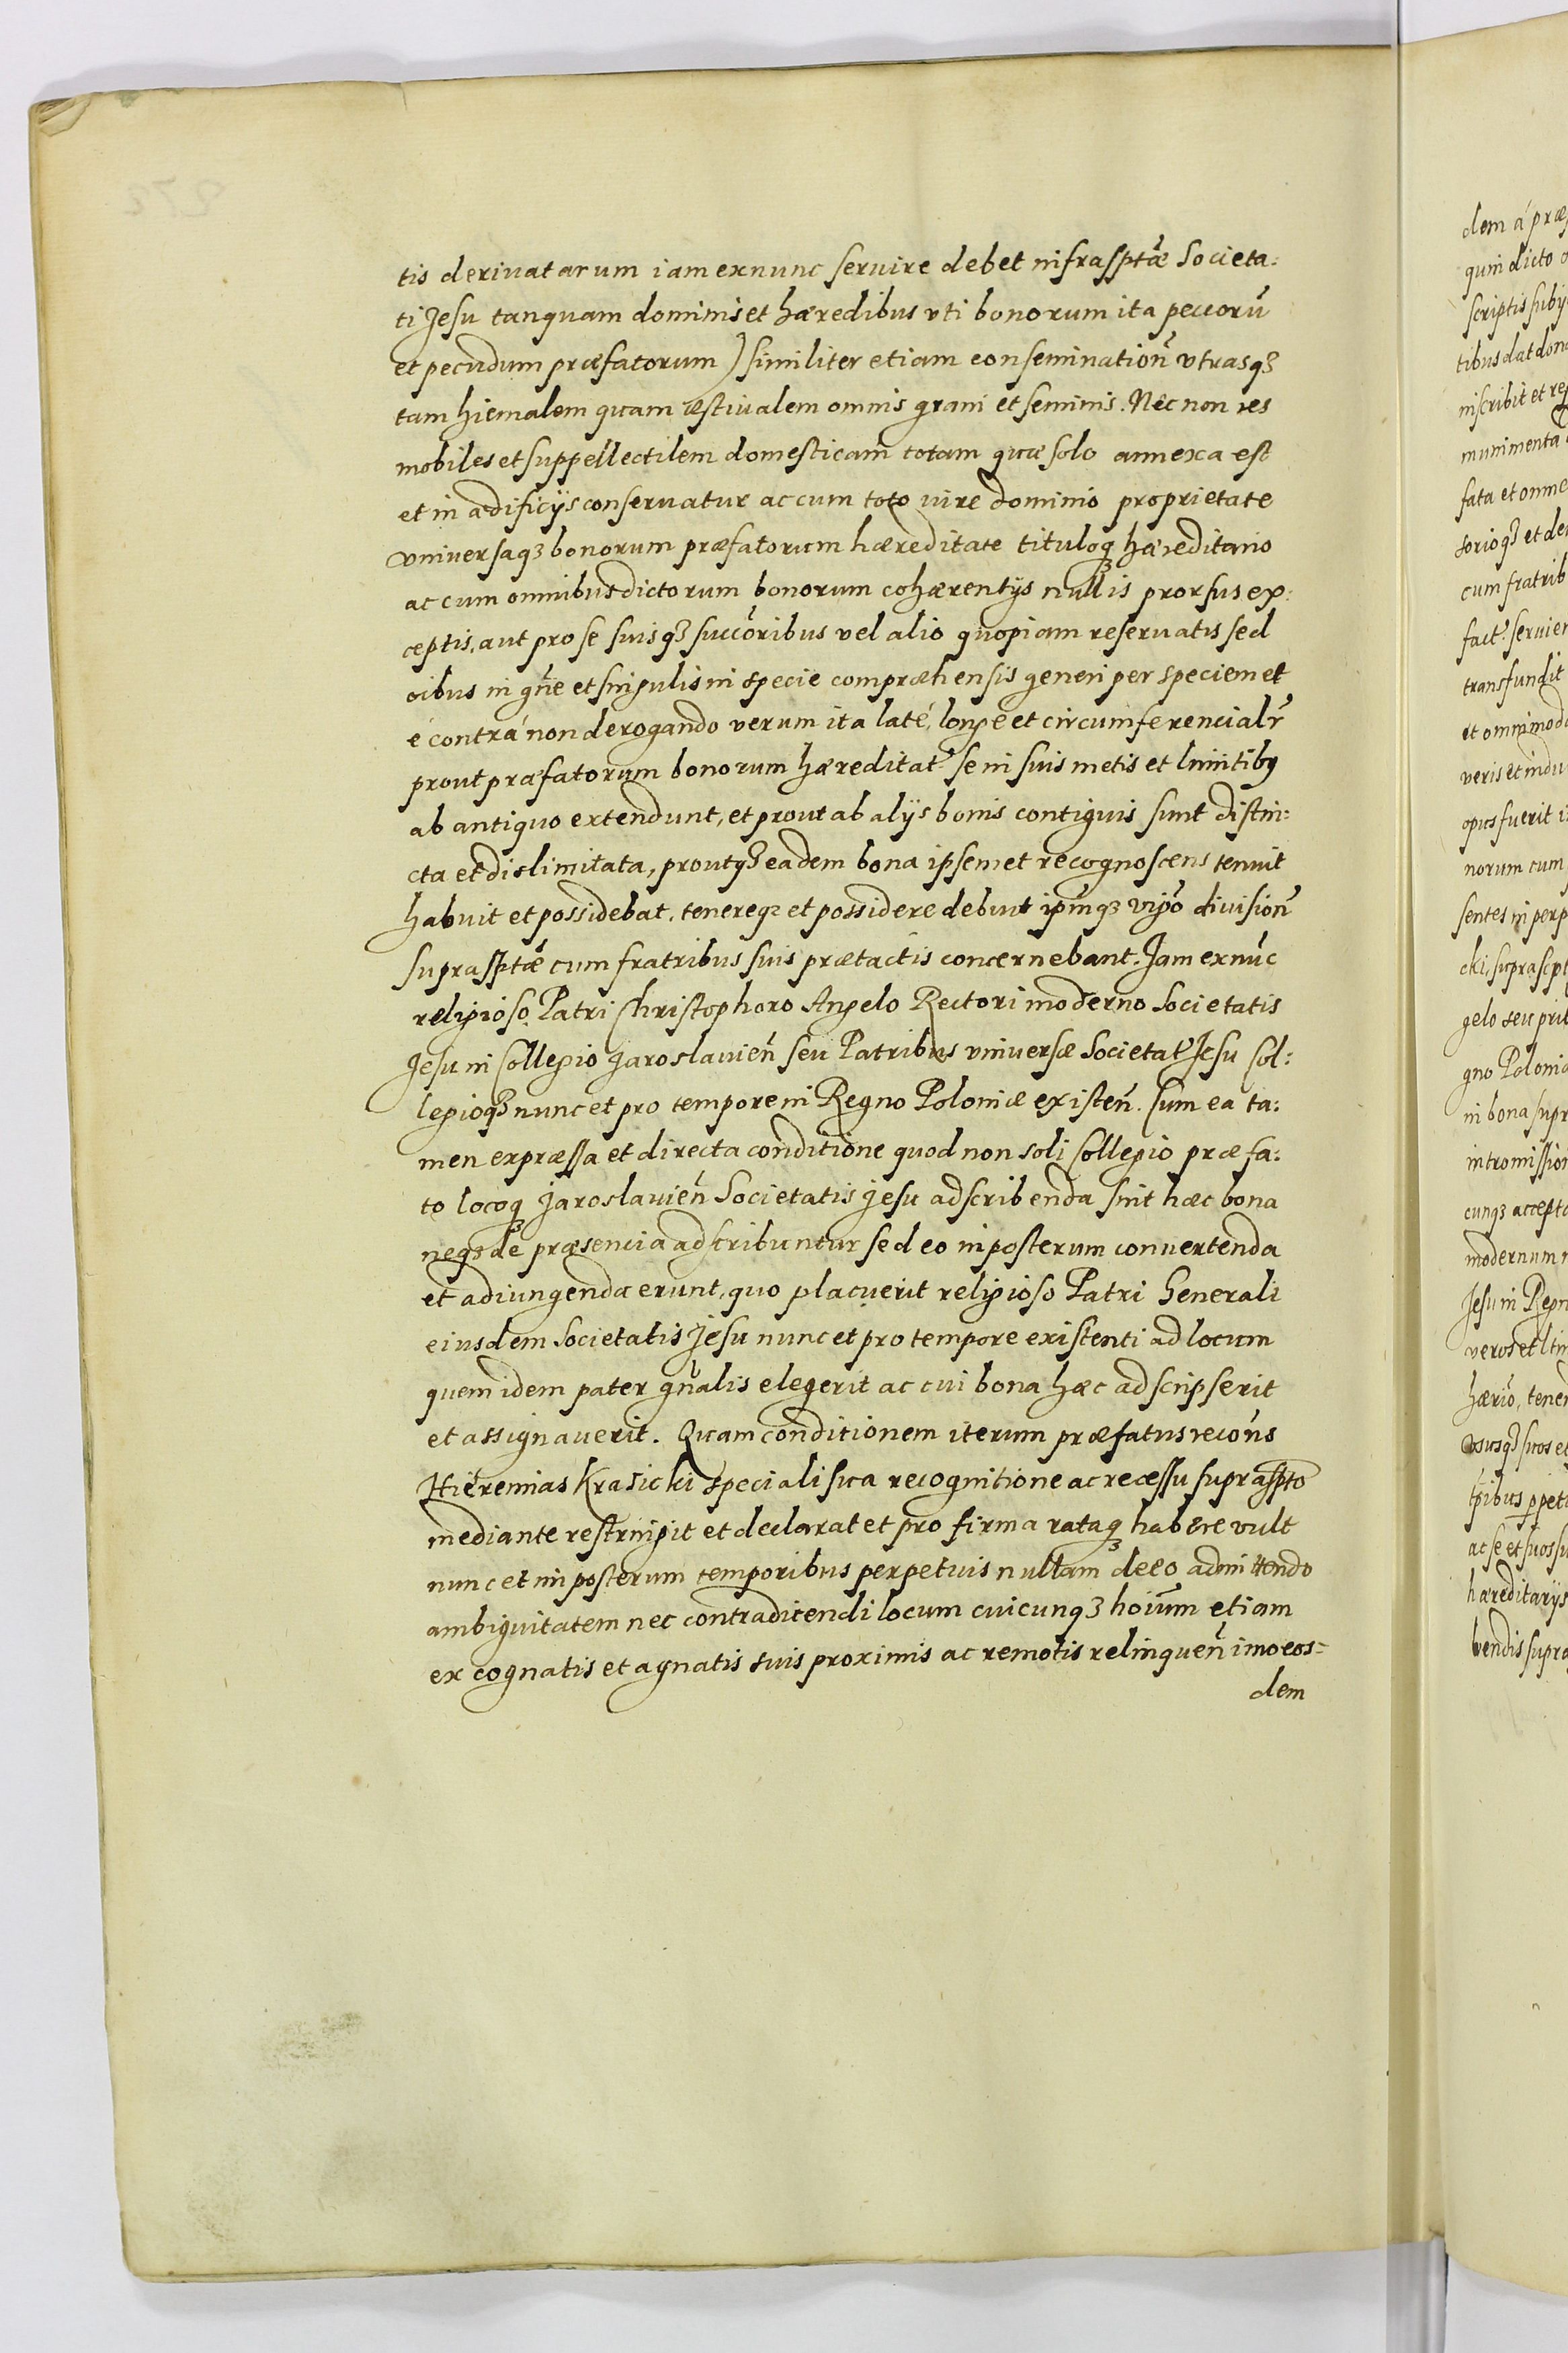 tis deriuatarum iam ex nunc seruire debet infrassptæ Societa:
ti Jesu tanquam dominis et hæredibus vti bonorum ita peccorũ
et pecudum præfatorum) similiter etiam conseminationẽ vtrasqȝ
tam hiemalem quam æstiualem omnis grani et seminis. Nec non res
mobiles et suppellectilem domesticam totam quæ solo annexa est
et in ædificijs conseruatur ac cum toto iure dominio proprietate
vniversaqȝ bonorum præfatorum hæreditate tituloqȝ hæreditario
ac cum omnibus dictorum bonorum cohærentijs nullis prorsus ex:
ceptis, aut pro se suisqȝ succoribus vel alio quopiam reseruatis sed
oibus in gñe et singulis in specie compræhensis generi per speciem et
é contrá non derogando verum ita laté, longé et circumferencialr̃
prout præfatorum bonorum hæreditat. se in suis metis et limitibꝰ
ab antiquo extendunt, et prout ab alijs bonis contiguis sunt distin:
cta et dislimitata, proutqȝ eadem bona ipsemet recognoscens tenuit
habuit et possidebat, tenereqȝ et possidere debuit ipm̃qȝ divisionẽ
suprassptæ cum fratribus suis prætactis concernebant. Jam ex nũc
religioso Patri Christophoro Angelo Rectori moderno Societatis
Jesu in Collegio Jaroslauień seu Patribus vniversæ Societat. Jesu Col:
legioqȝ nunc et pro tempore in Regno Poloniæ existeñ. Cum ea ta:
men expræssa et directa conditione quod non soli Collegio præfa:
to locoqȝ Jaroslauień Societatis Jesu adscribenda sint hæc bona
neqȝ de præsencia adscribuntur sed eo in posterum conuertenda
et adiungenda erunt, quo placuerit religioso Patri Generali
eiusdem Societatis Jesu nunc et pro tempore existenti ad locum
quem idem pater gñalis elegerit ac cui bona hæc adscripserit
et assignauerit. Quam conditionem iterum præfatus recoñs
Hieremias Krasicki speciali sua recognitione ac recessu suprasspto
mediante restringit et declarat et pro firma rataqȝ habere vult
nunc et in posterum temporibus perpetuis nullam de eo admittendo
ambiguitatem nec contradicendi locum cuicunqȝ hoium̃ etiam
ex cognatis et agnatis suis proximis ac remotis relinqueñ imo eos=
dem
dem á præ
quin dicto
scriptis subij
tibus dat don
inscribit et re
munimenta
fata et omne
sorioqȝ et de
cum fratrib
fact. seruien
transfundit
et omnimod
veris et indu
opus fuerit
norum cum
sentes in perp
cki, suprascpt
gelo seu pri
gno Polonia
in bona supr
intromission
cunqȝ accept
modernum
Jesu in Regn
veros et
hærio, tenen
vsusqȝ suos et
ꝑpet
ac se et suos su
hæreditarijs
bendis supra